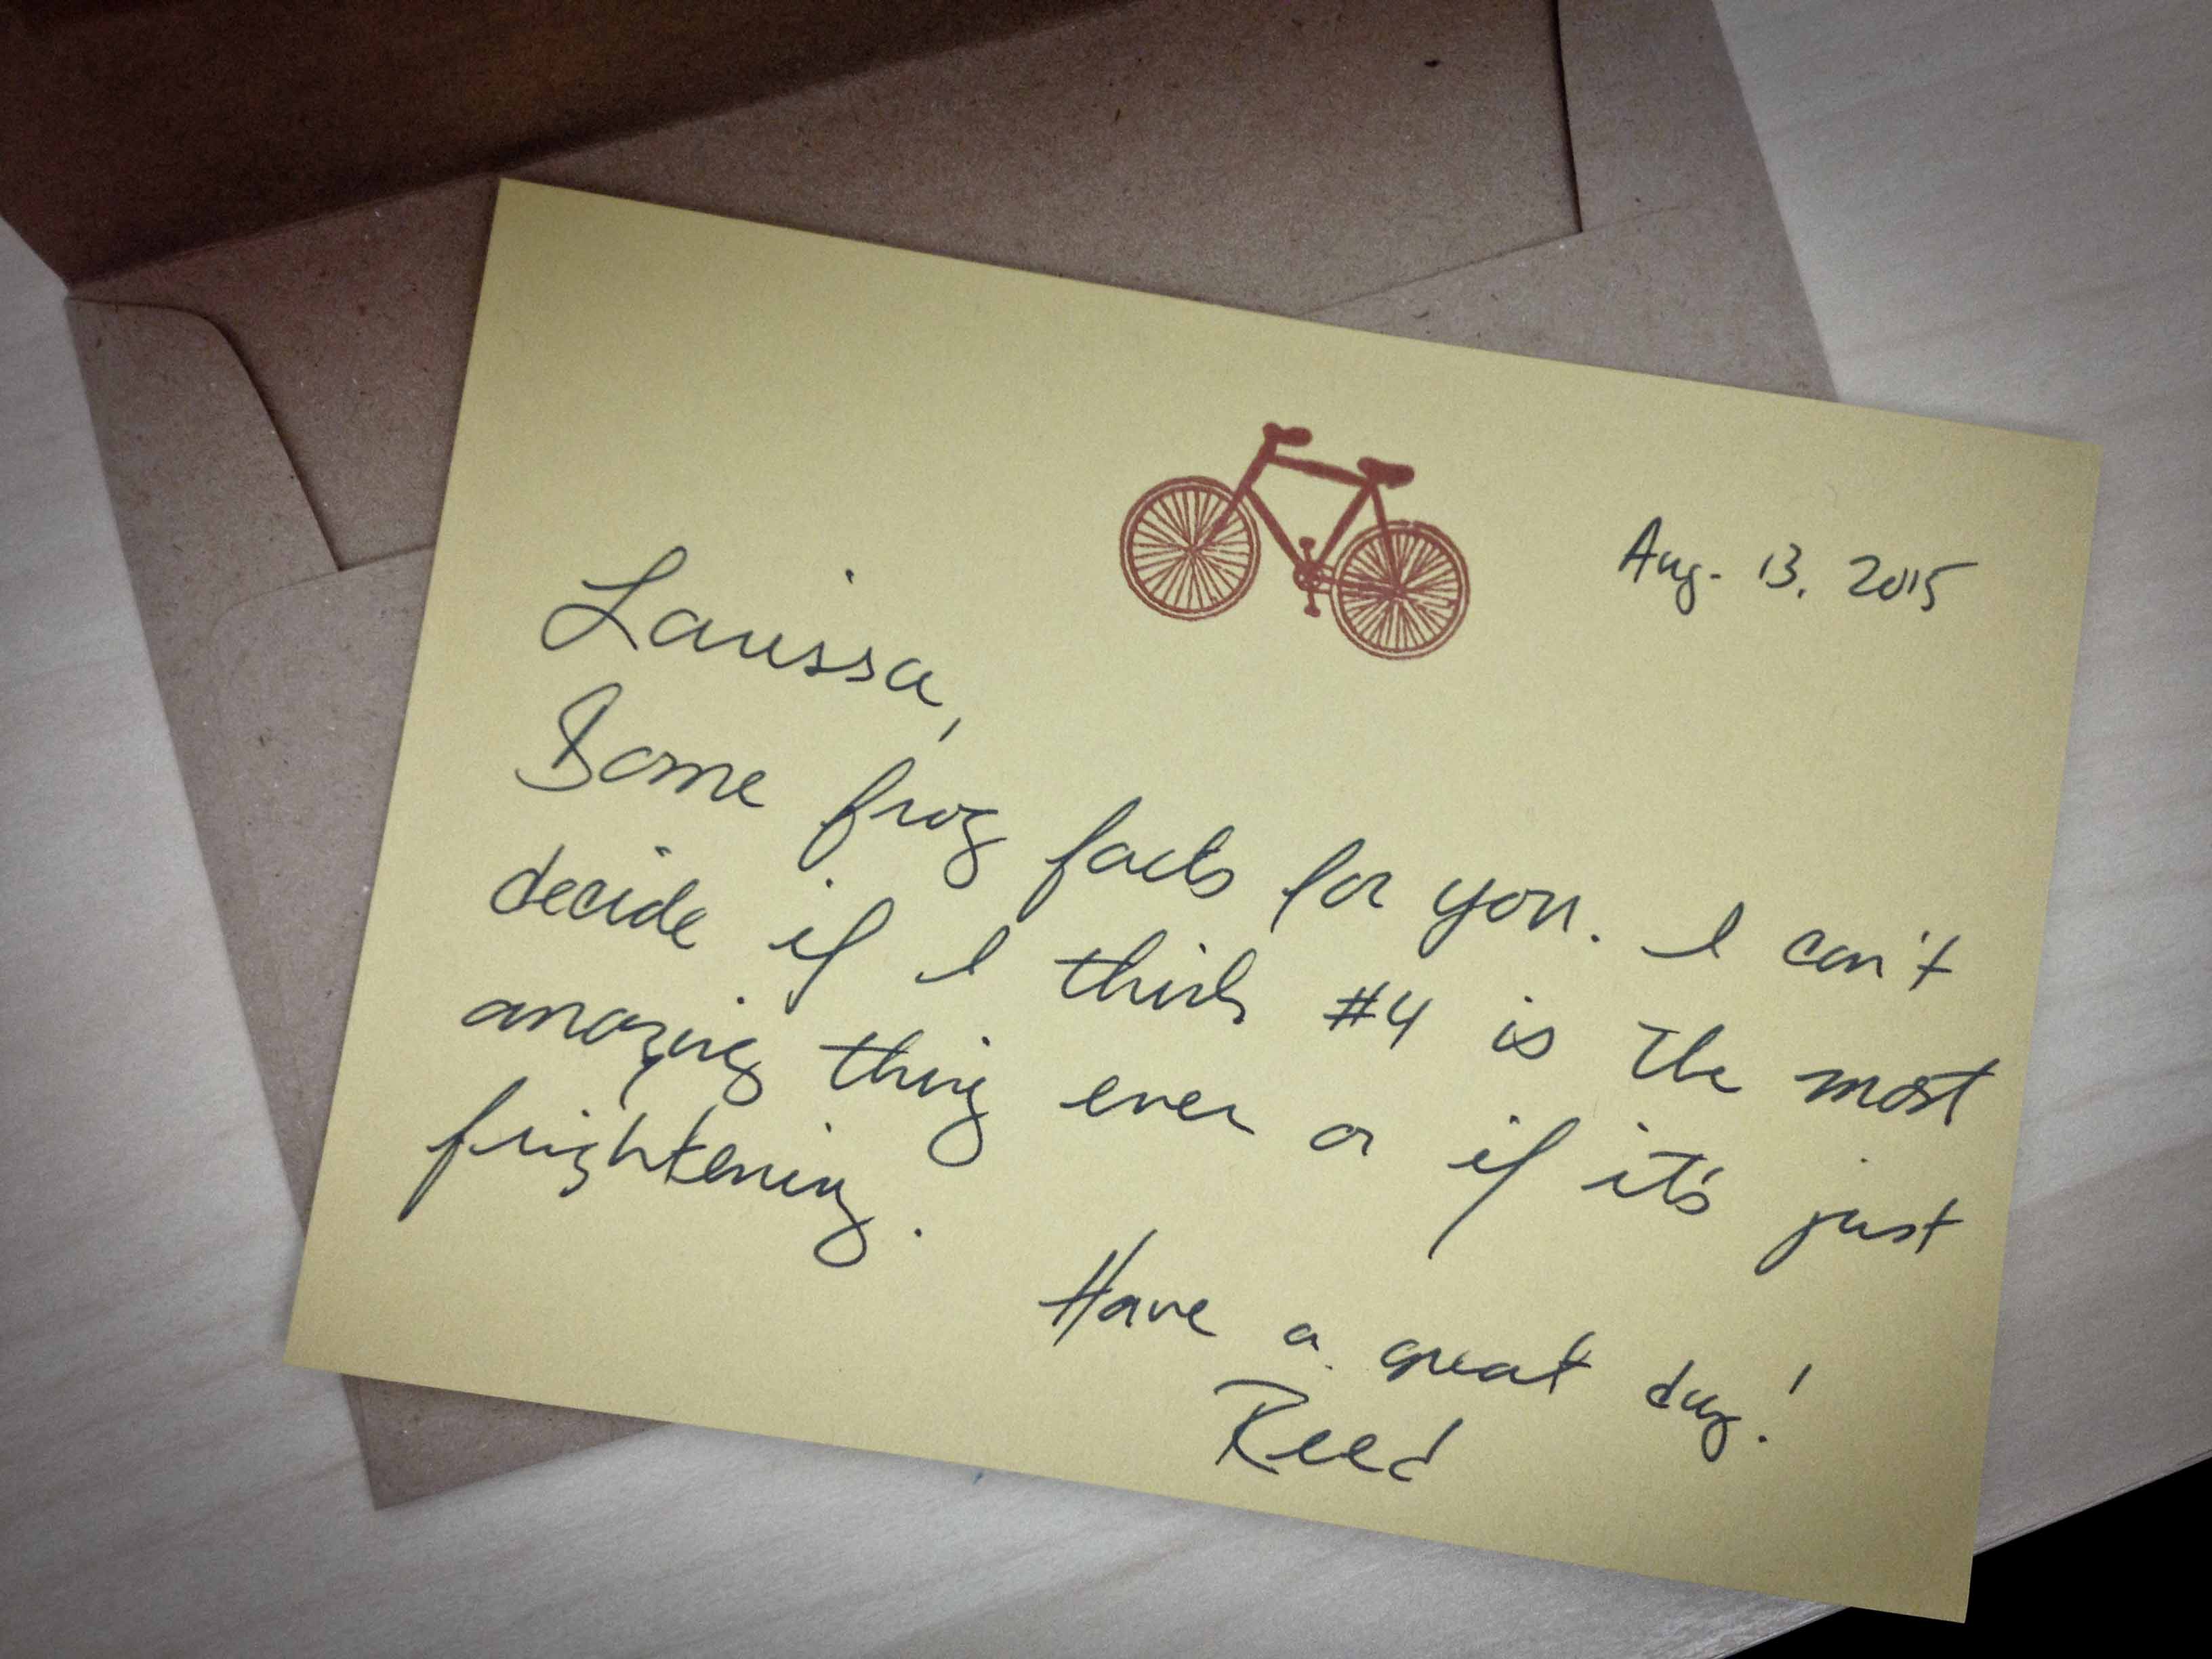 Aug. 13, 2015
Larissa,
Some frog facts for you. I can't
decide if I think #4 is the most
amazing thing ever or if it's just
frightening.
Have a great day!
Reed